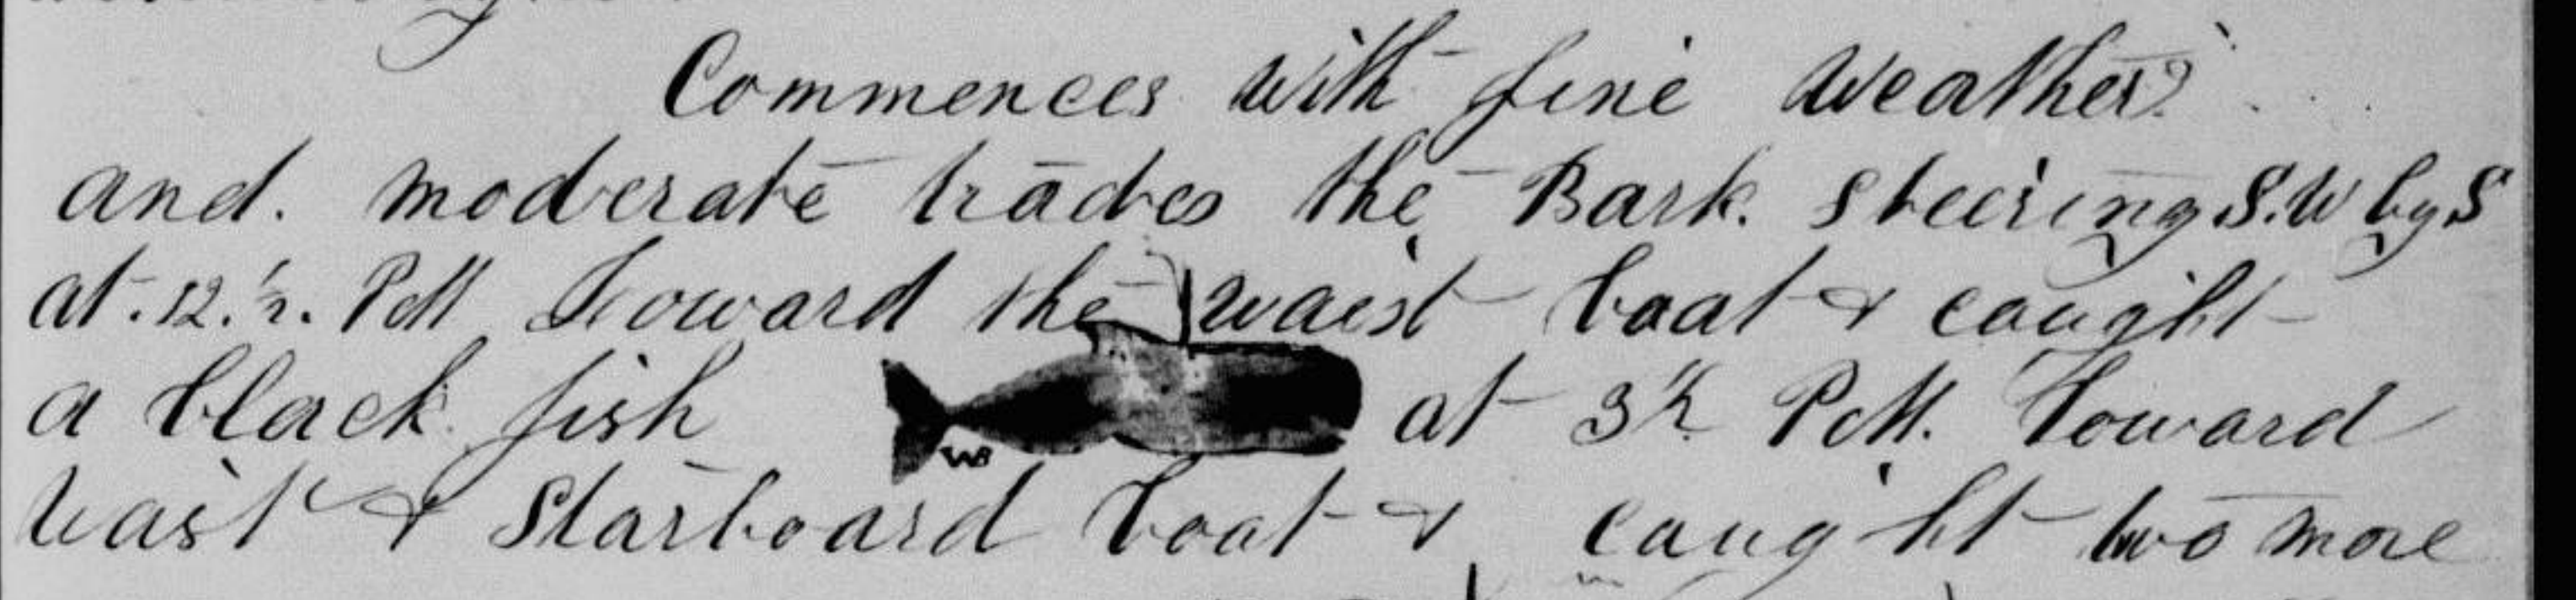 Commences with fine weather
and. moderate trades the Bark. steering S.W by S
at. 12. ½. PM Loward the waist boat & caught
a black fish at 3h PM. Loward
waist & Starboard boat & caught two more